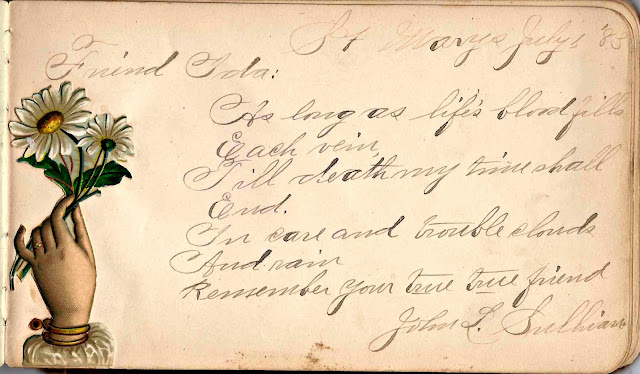 St Marys July 1 '85
Friend Ida:
As long as life's blood fills
Each vein,
Till death my time shall
End.
In care and trouble clouds
And rain
Remember your true true friend
John L. Sullivan